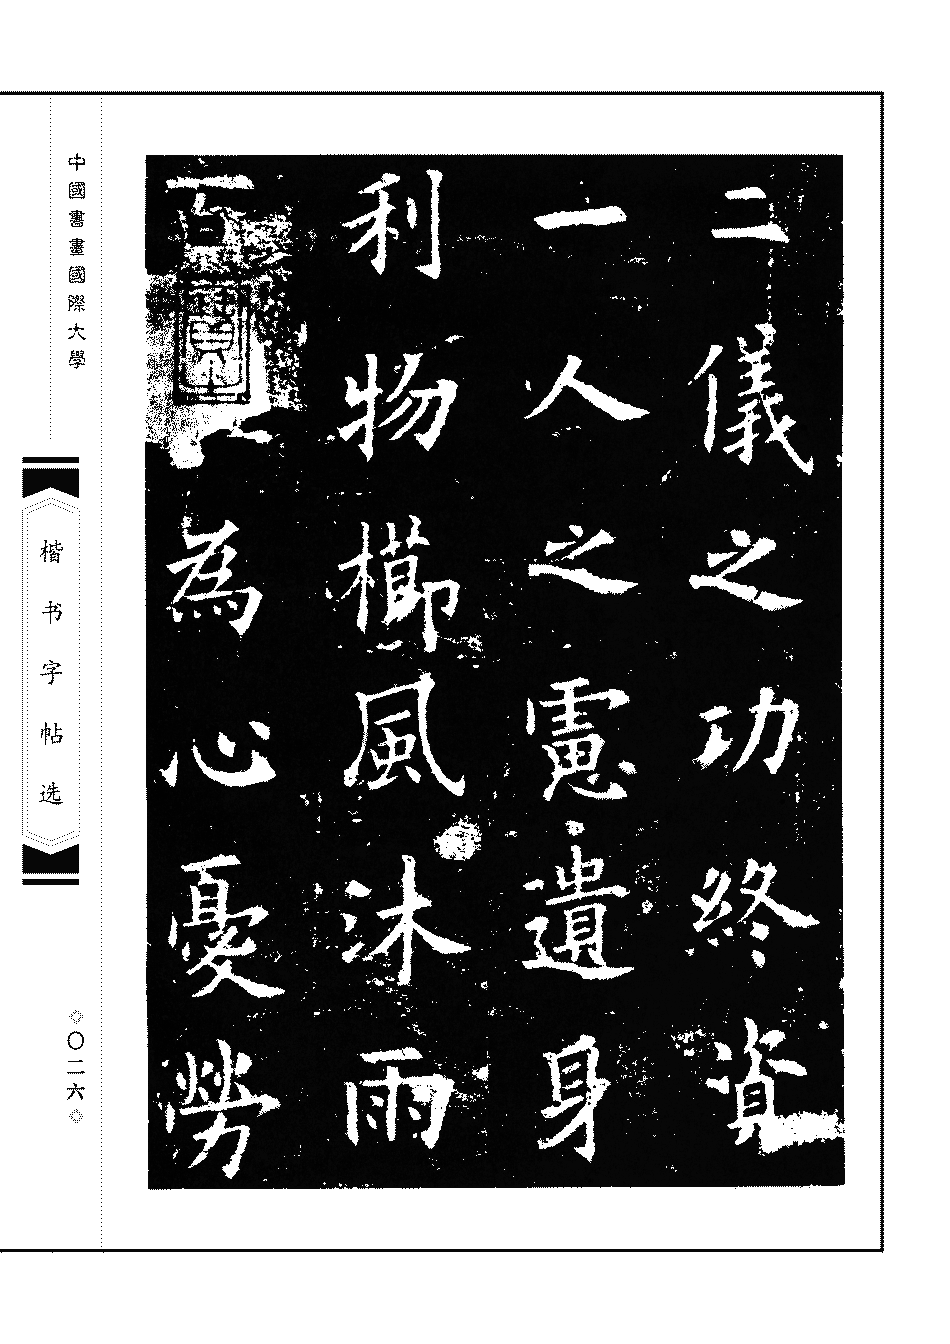 二儀之功終資
一人之慮遺身
利物櫛風沐雨
百為心憂勞
中國書畫國際大學
楷书字帖选
〇二六